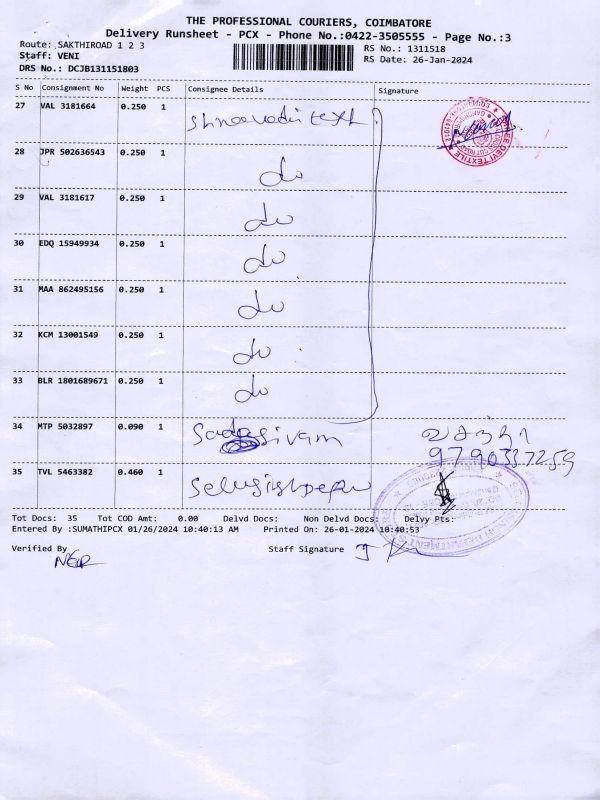 THE PROFESSIONAL COURIERS, COIMBATORE
Delivery Runsheet - PCX - Phone No.:0422-3505555 - Page No.:3
Route: SAKTHIROAD 1 2 3 RS No.: 1311518
Staff: VENI RS Date: 26-Jan-2024
DRS No.: DCJB131151803
S No Consignment No Weight PCS Consignee Details Signature
27 VAL 3181664 0.250 1
28 JPR 502636543 0.250 1 do
29 VAL 3181617 0.250 1 do
30 EDQ 15949934 0.250 1 do
31 MAA 862495156 0.250 1 do
32 KCM 13001549 0.250 1 do
33 BLR 1801689671 0.250 1 do
34 MTP 5032897 0.090 1 Sadasivam வசந்தா
9790337259
35 TVL 5463382 0.460 1
Tot Docs: 35 Tot COD Amt: 0.00 Delvd Docs: Non Delvd Docs: Delvy Pts:
Entered By :SUMATHIPCX 01/26/2024 10:40:13 AM Printed On: 26-01-2024 10:40:53
Verified By Staff Signature